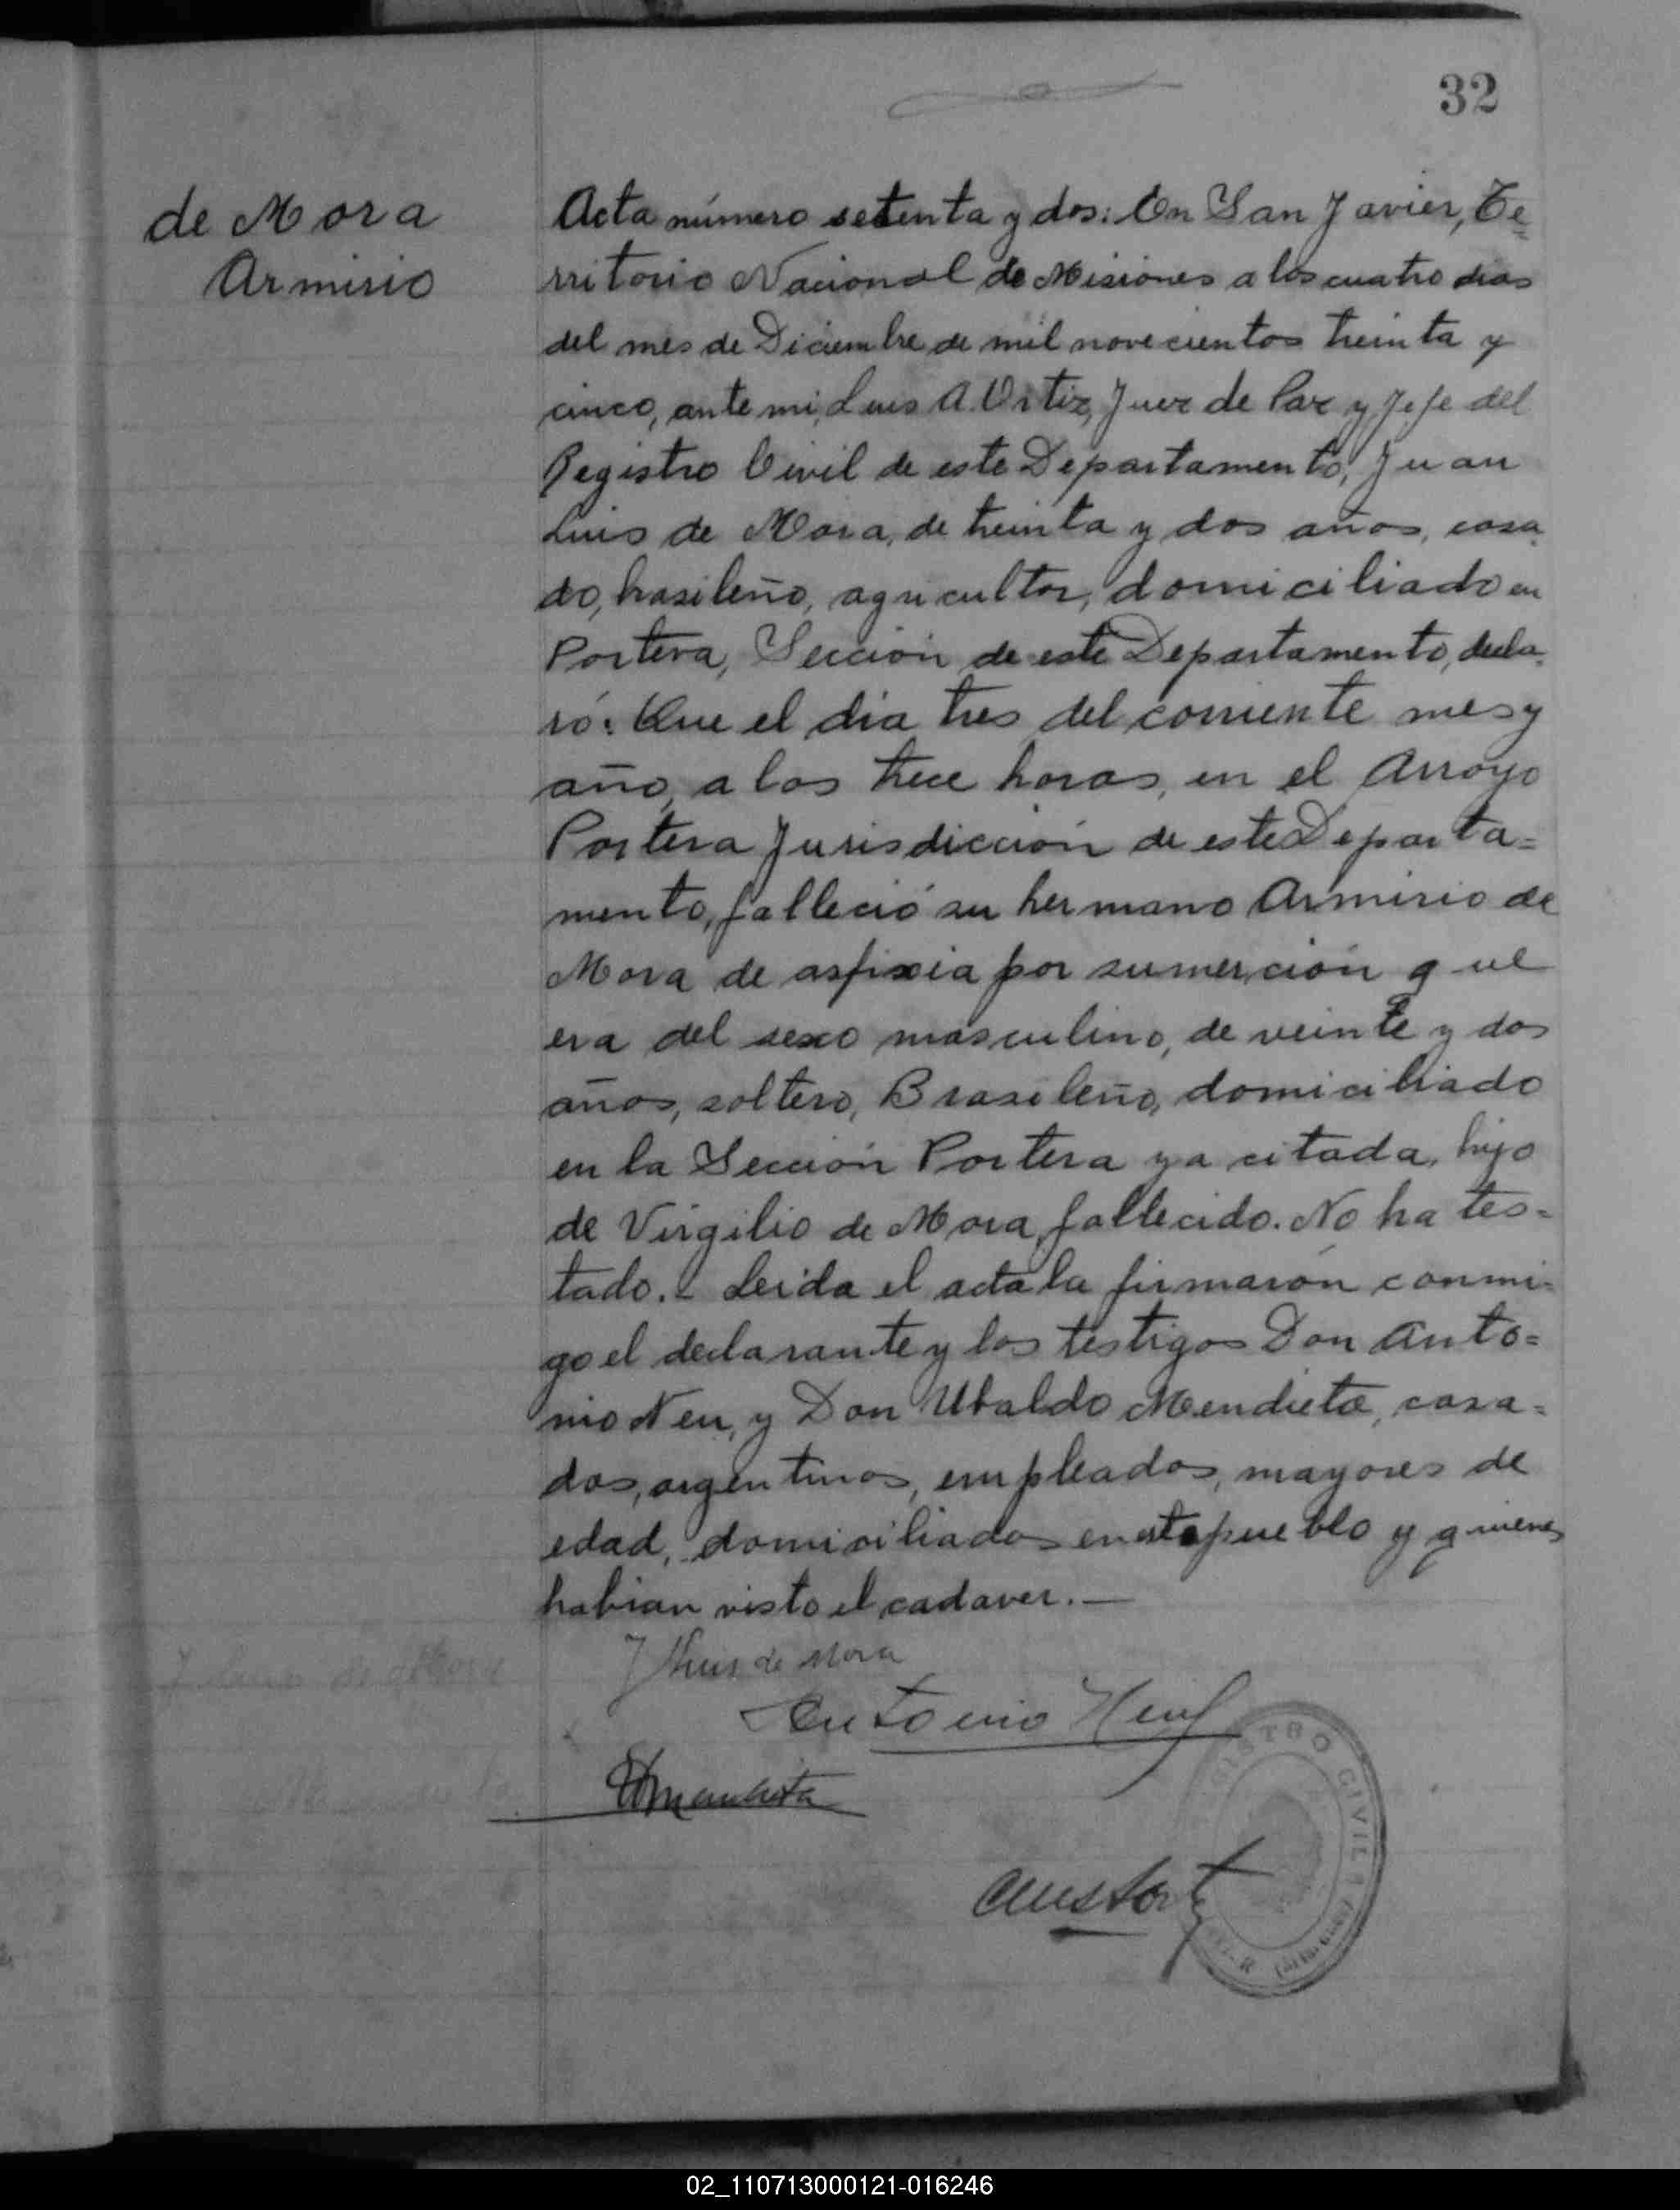 32
de Mora
Armisio
Acta número setenta y dos: En San Javier, Te=
rritorio Nacional de Misiones a los cuatro dias
del mes de Diciembre de mil novecientos treinta y
cinco, ante mi, Luis A. Ortiz, Juez de Paz y Jefe del
Registro Civil de este Departamento, Juan
Luis de Mora, de treinta y dos años, casa
do, brasileño, agricultor, domiciliado en
Portera, Sección de este Departamento, decla
ró: Que el dia tres del corriente mes y
año, a las trece horas, en el Arroyo
Portera Jurisdicción de este Departa=
mento, falleció su hermano Armisio de
Mora de asfixia por sumerción que
era del sexo masculino, de veinte y dos
años, soltero, Brasileño, domiciliado
en la Sección Portera ya citada, hijo
de Virgilio de Mora, fallecido. No ha tes=
tado. - Leida el acta la firmarón conmi-
go el declarante y los testigos Don Anto=
nio Neu, y Don Ubaldo Mendieta, casa=
dos, argentinos, empleados, mayores de
edad, domiciliados en este pueblo y quienes
habian visto el cadaver. —
J Luis de Mora
Antonio Neu
UMendieta
REGISTRO CIVIL
02_110713000121-016246